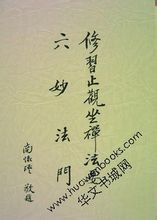 修習止觀坐禪法要
六妙法門
南懷瑾 敬題
www.huawenbooks.com
华文书城网